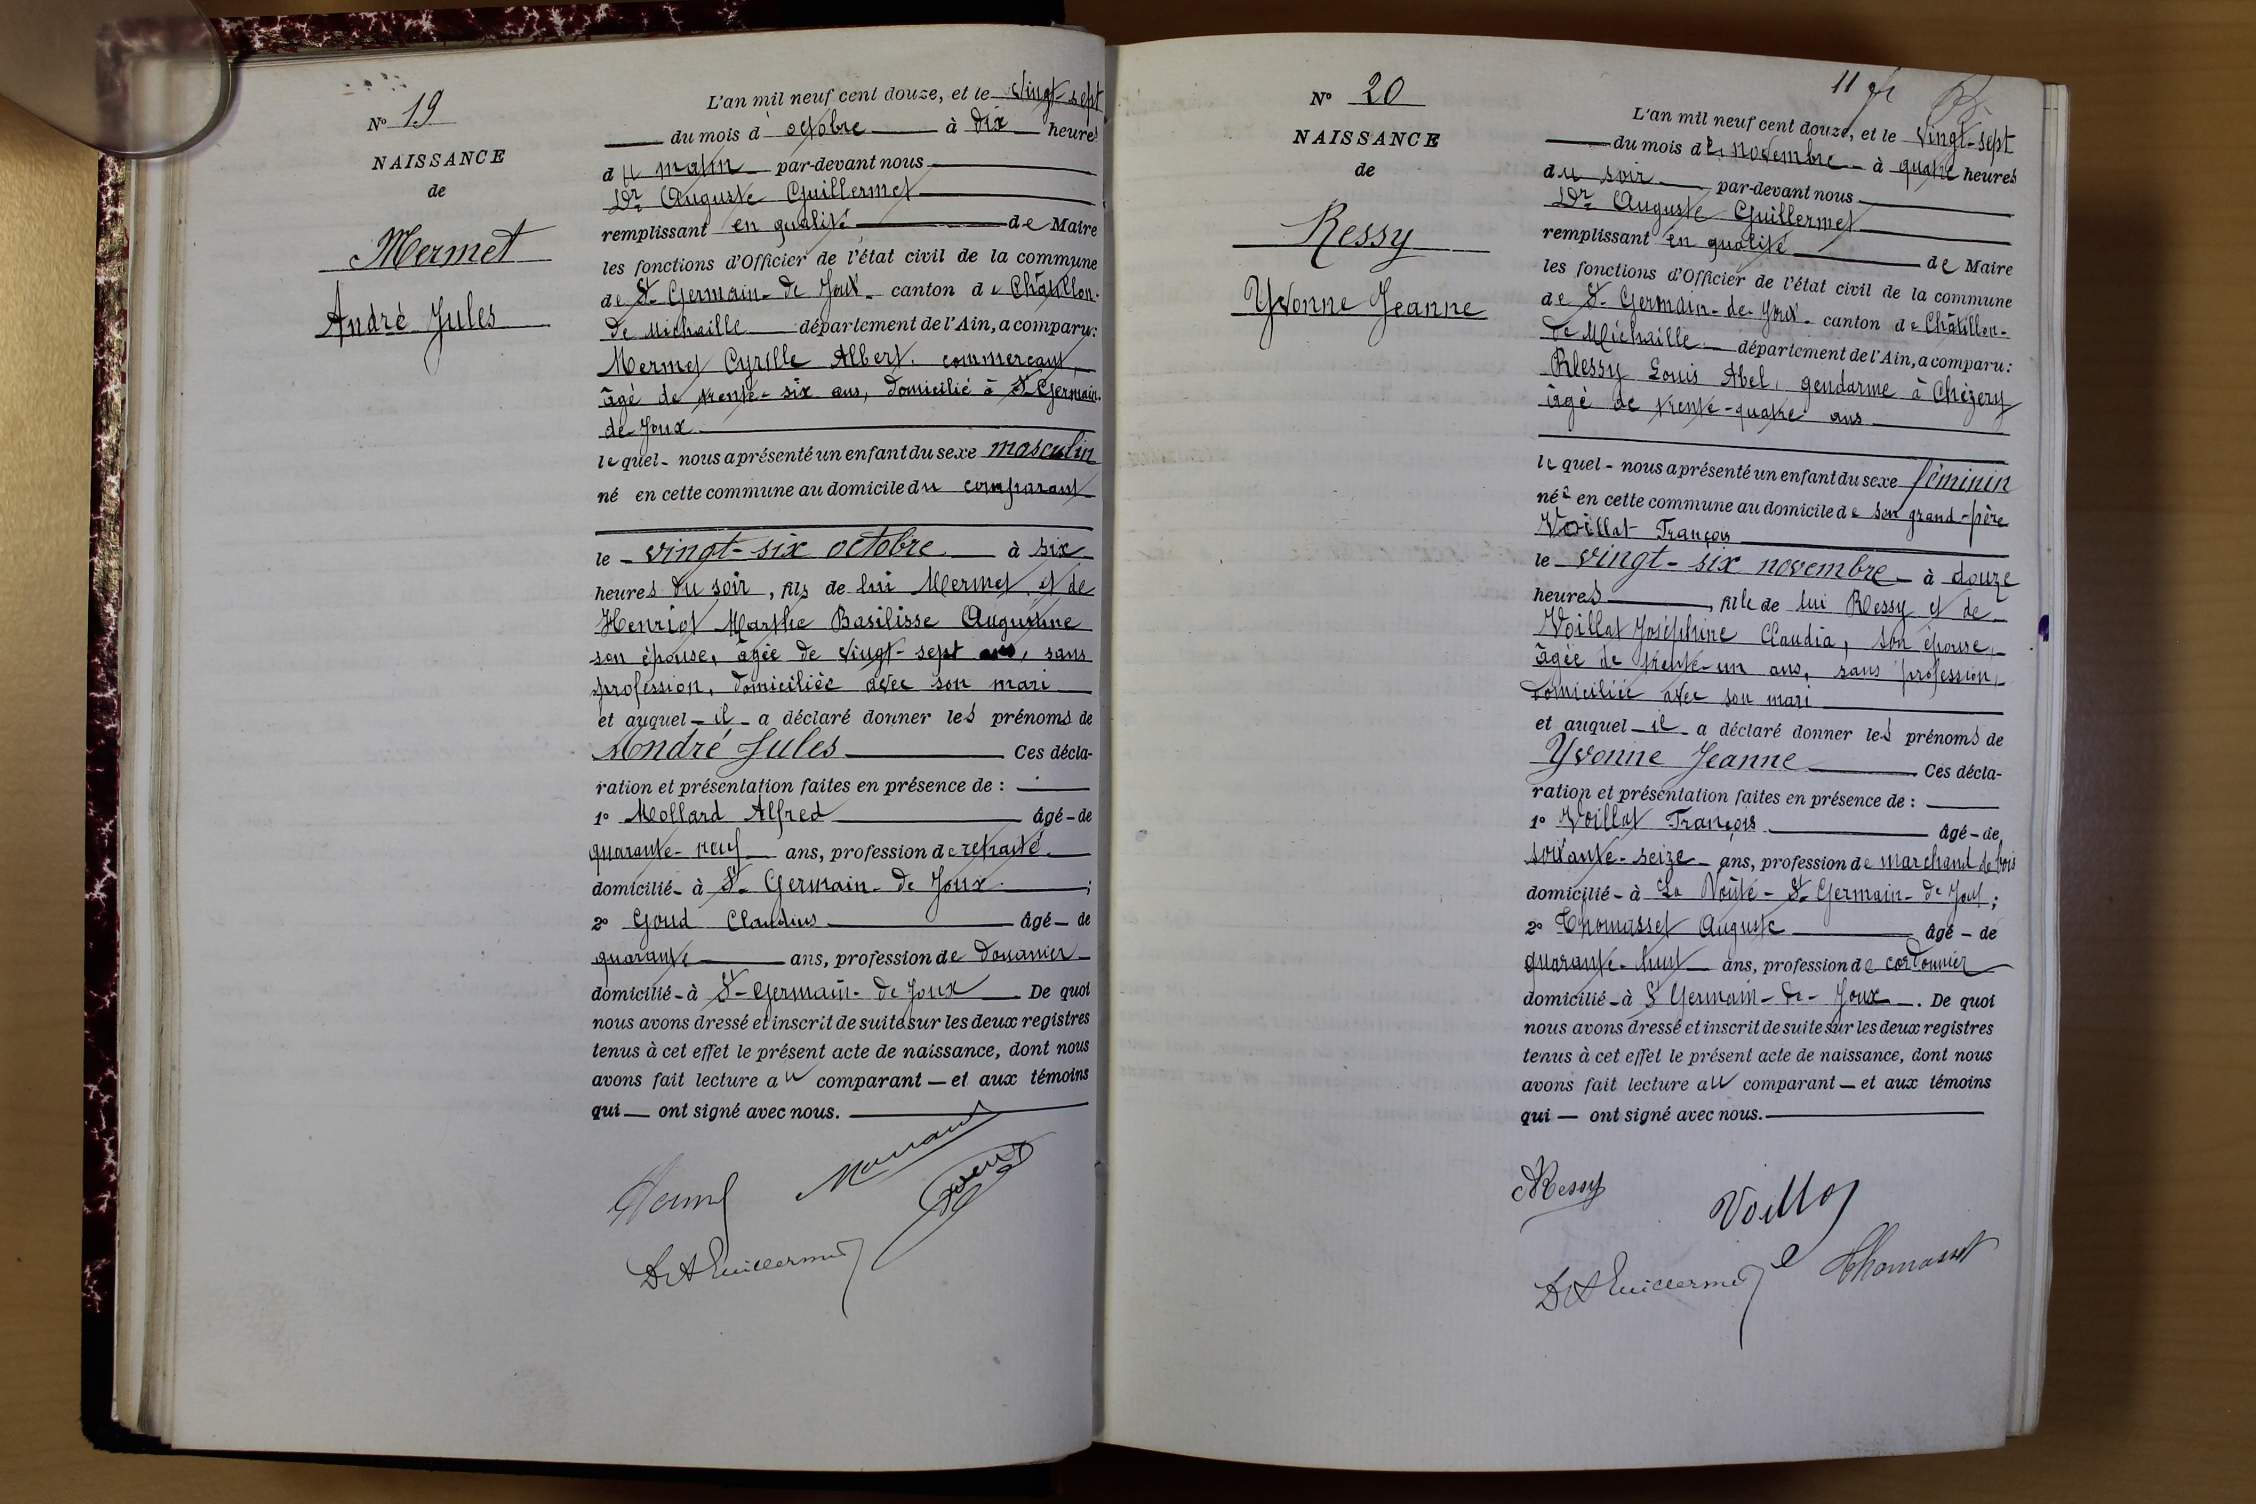 N° 19
NAISSANCE
de
Mermet
André Jules
L'an mil neuf cent douze, et le vingt-sept
du mois d'octobre à dix heures
du matin par-devant nous
Dr Auguste Guillermet
remplissant en qualité de Maire
les fonctions d'Officier de l'état civil de la commune
de St Germain-de Joux canton de Châtillon-
de Michaille département de l'Ain, a comparu:
Mermet Cyrille Albert, commerçant,
âgé de trente-six ans, domicilié à St Germain-
de Joux
lequel nous a présenté un enfant du sexe masculin
né en cette commune au domicile du comparant
le vingt-six octobre à six
heures du soir, fils de lui Mermet et de
Henriot Marthe Basilisse Augustine
son épouse, âgée de vingt-sept ans, sans
profession, domiciliée avec son mari
et auquel il a déclaré donner les prénoms de
André Jules Ces décla-
ration et présentation faites en présence de :
1° Mollard Alfred âgé de
quarante-neuf ans, profession de retraité
domicilié à St Germain-de Joux ;
2° Goud Claudius âgé de
quarante ans, profession de douanier
domicilié à St Germain-de Joux. De quoi
nous avons dressé et inscrit de suite sur les deux registres
tenus à cet effet le présent acte de naissance, dont nous
avons fait lecture au comparant et aux témoins
qui ont signé avec nous.
Dr A Guillermet
N° 20
NAISSANCE
de
Ressy
Yvonne Jeanne
11
L'an mil neuf cent douze, et le vingt-sept
du mois de novembre à quatre heures
du soir par-devant nous
Dr Auguste Guillermet
remplissant en qualité de Maire
les fonctions d'Officier de l'état civil de la commune
de St Germain-de-Joux canton de Châtillon-
de Michaille département de l'Ain, a comparu:
Ressy Louis Abel, gendarme à Chézery
âgé de trente-quatre ans
lequel nous a présenté un enfant du sexe féminin
née en cette commune au domicile de son grand-père
Voillat François
le vingt-six novembre à douze
heures, fille de lui Ressy et de
Voillat Joséphine Claudia, son épouse,
âgée de trente-un ans, sans profession,
domiciliée avec son mari
et auquel il a déclaré donner les prénoms de
Yvonne Jeanne Ces décla-
ration et présentation faites en présence de :
1° Voillat François âgé de
soixante-seize ans, profession de marchand de bois
domicilié à La Voûte-St Germain-de Joux;
2° Thomasset Auguste âgé de
quarante-huit ans, profession de cordonnier
domicilié à St Germain-de-Joux. De quoi
nous avons dressé et inscrit de suite sur les deux registres
tenus à cet effet le présent acte de naissance, dont nous
avons fait lecture au comparant et aux témoins
qui ont signé avec nous.
Ressy
Voillat
Dr A Guillermet
Thomasset